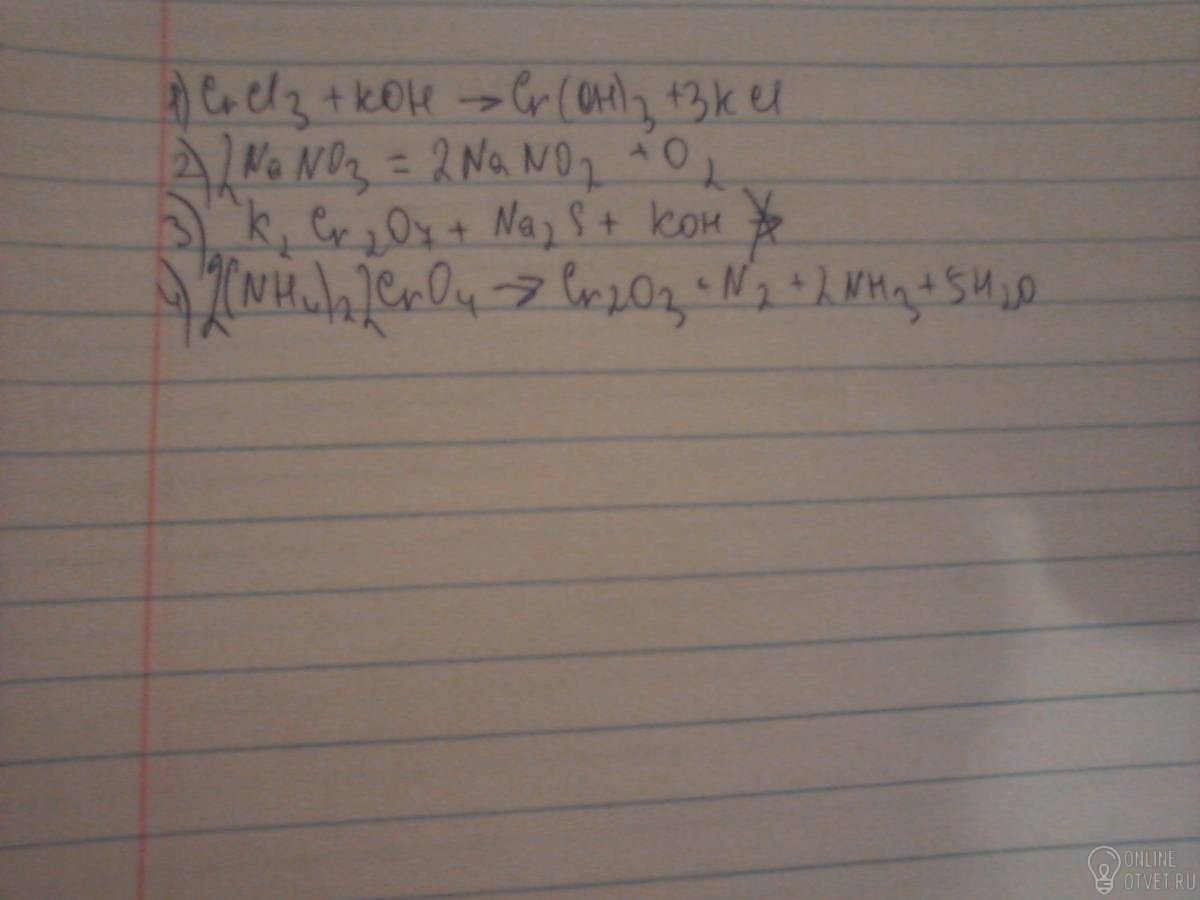 1) CrCl3 + KOH → Cr(OH)3 + 3KCl
2) 2NaNO3 = 2NaNO2 + O2
3) K2Cr2O7 + Na2S + KOH
4) 2[(NH4)2]2CrO4 → Cr2O3 + N2 + 2NH3 + 5H2O
ONLINE
OTVET.RU